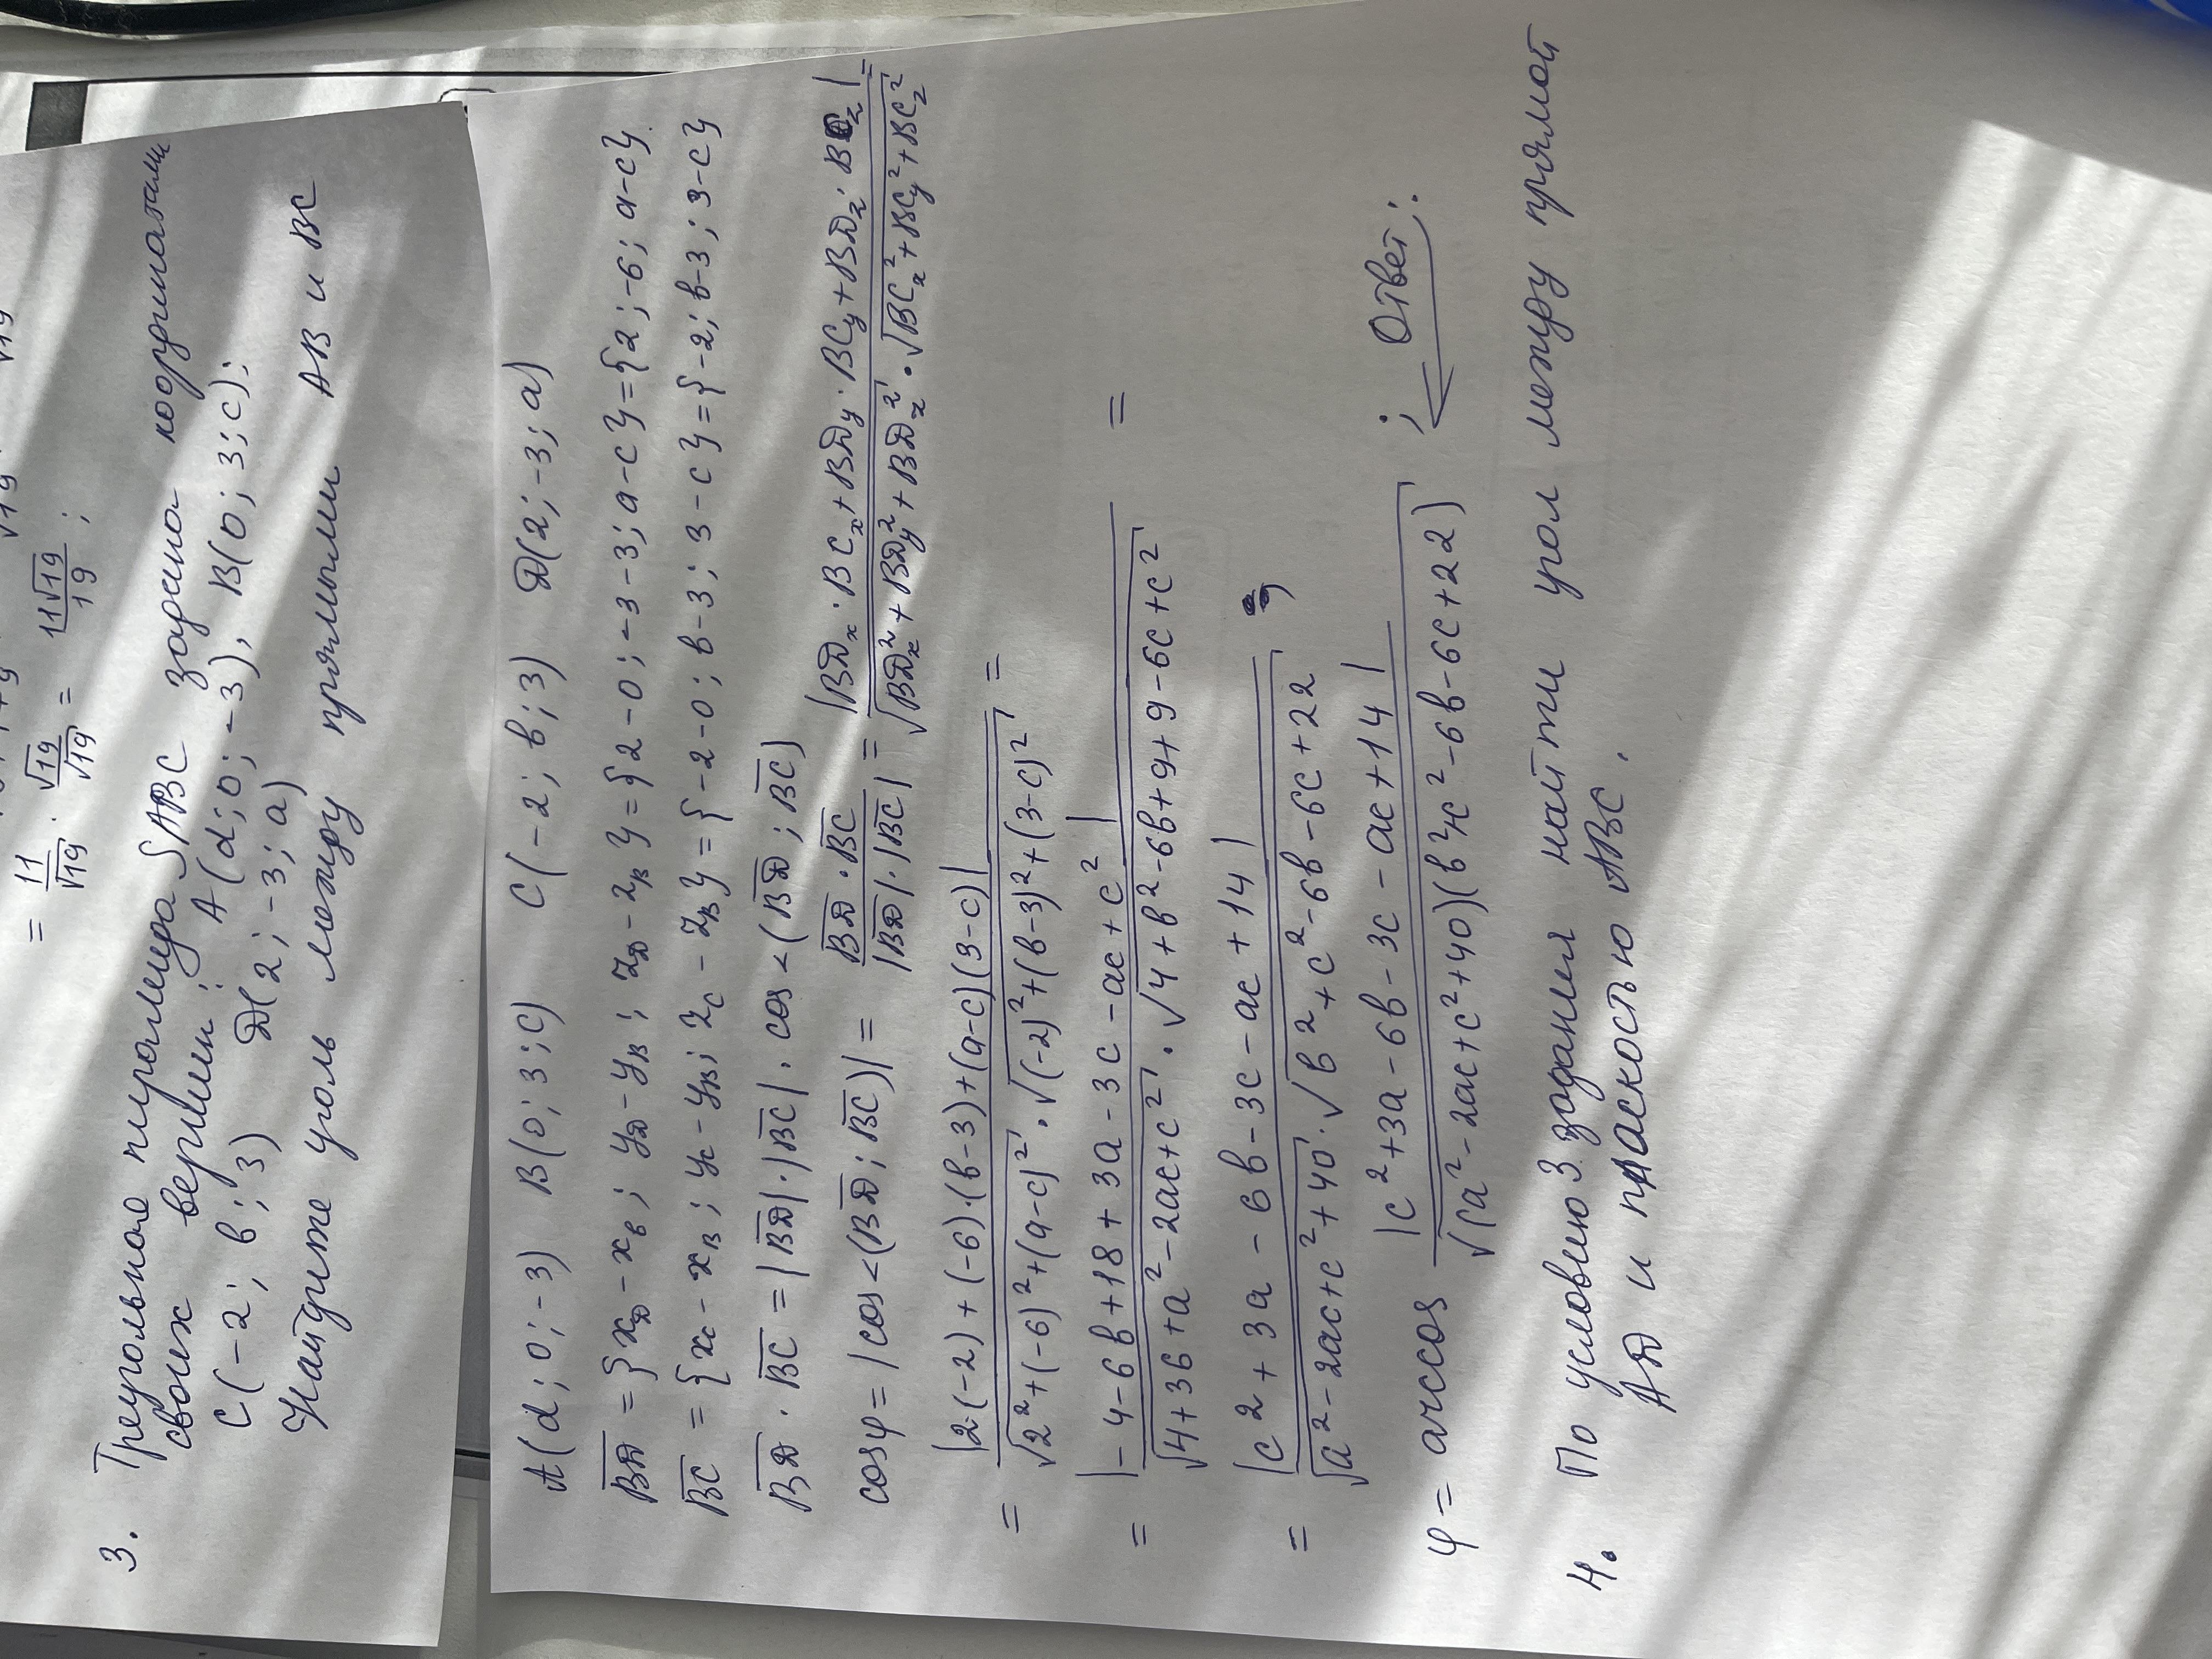 = 11/√19 · √19/√19 = 11√19/19 ;
3. Треугольное пирамида SABC задано координатами
своих вершин: A(d; 0; -3), B(0; 3; c):
C(-2; b; 3) D(2; -3; a)
Найдите уголь между прямыми AB и BC
A(d; 0; -3) B(0; 3; c) C(-2; b; 3) D(2; -3; a)
BD = {x_D - x_B; y_D - y_B; z_D - z_B} = {2-0; -3-3; a-c} = {2; -6; a-c}
BC = {x_C - x_B; y_C - y_B; z_C - z_B} = {-2-0; b-3; 3-c} = {-2; b-3; 3-c}
BD · BC = |BD| · |BC| · cos<(BD; BC)
cosφ = |cos<(BD; BC)| = BD · BC / |BD| · |BC| = |BD_x · BC_x + BD_y · BC_y + BD_z · BC_z| / √BD_x² + BD_y² + BD_z² · √BC_x² + BC_y² + BC_z² =
= |2·(-2) + (-6)·(b-3) + (a-c)(3-c)| / √2² + (-6)² + (a-c)² · √(-2)² + (b-3)² + (3-c)² =
= |-4 - 6b + 18 + 3a - 3c - ac + c²| / √4 + 36 + a² - 2ac + c² · √4 + b² - 6b + 9 + 9 - 6c + c² =
= |c² + 3a - 6b - 3c - ac + 14| / √a² - 2ac + c² + 40 · √b² + c² - 6b - 6c + 22 ;
φ = arccos |c² + 3a - 6b - 3c - ac + 14| / √(a² - 2ac + c² + 40)(b² + c² - 6b - 6c + 22) ; Ответ:
4. По условию 3 задания найти угол между прямой
AD и пласкостью ABC.